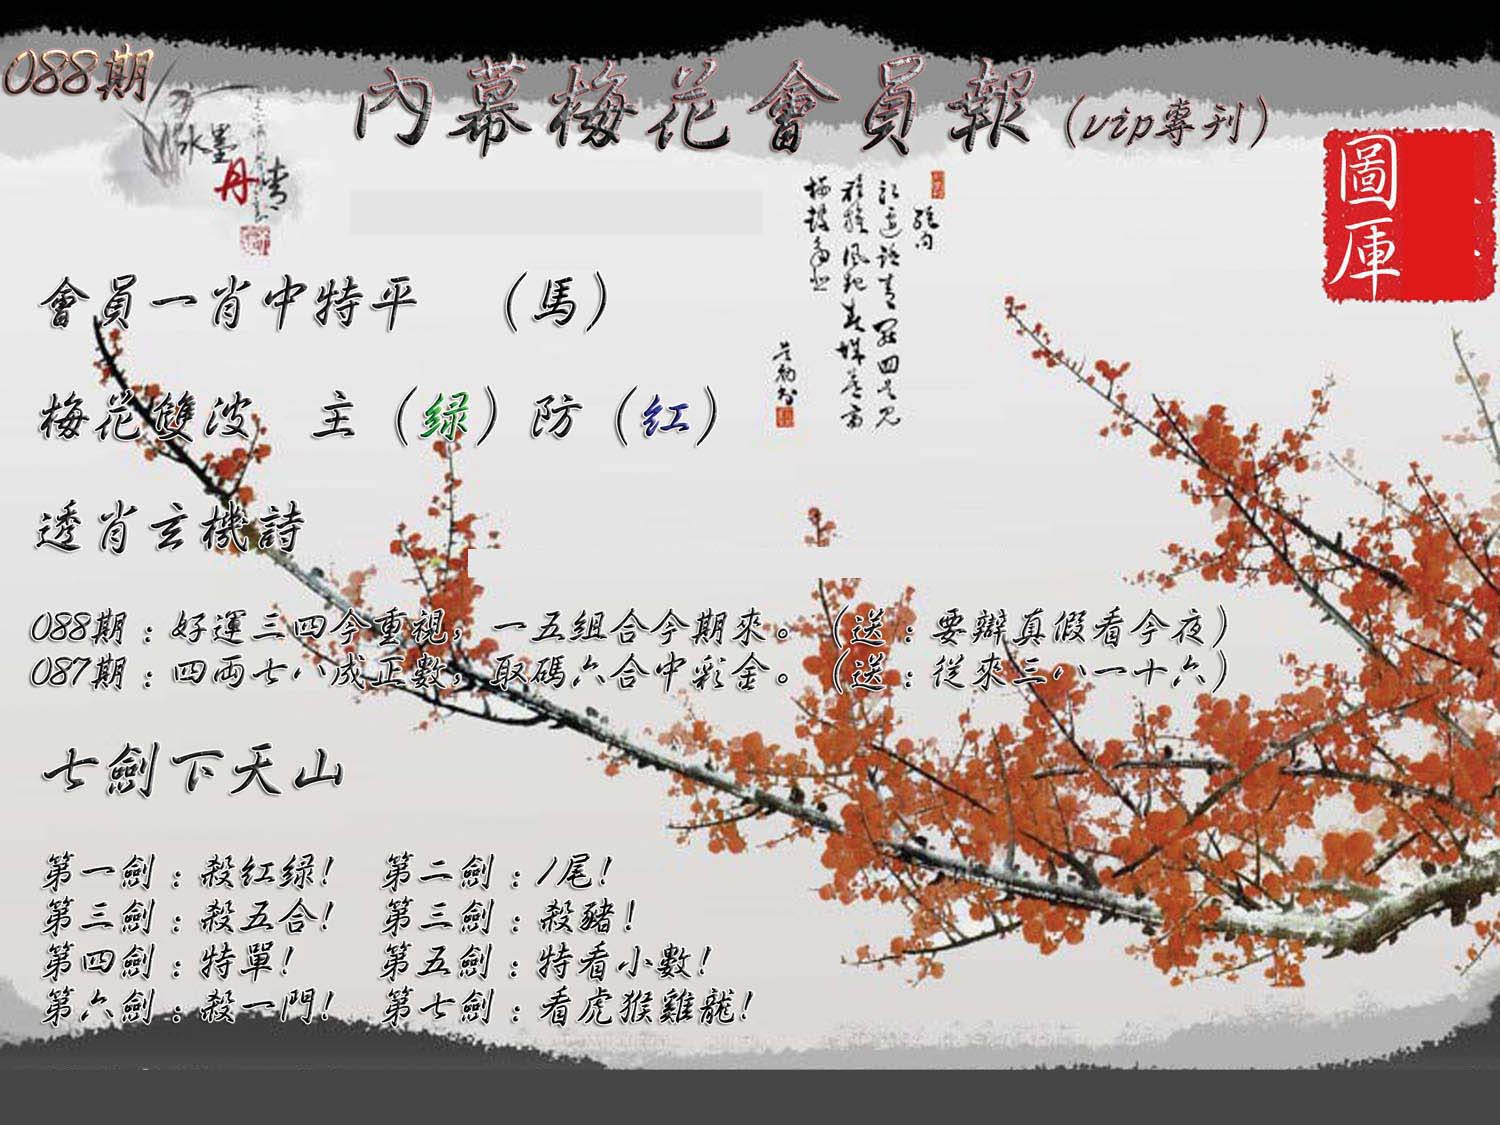 088期
內幕梅花會員報（vip專刊）
水墨
丹青
圖
庫
會員一肖中特平　（馬）
梅花雙波　主（绿）防（红）
透肖玄機詩
088期：好運三四今重視，一五組合今期來。（送：要辯真假看今夜）
087期：四両七八成正數，取碼六合中彩金。（送：從來三八一十六）
七劍下天山
第一劍：殺紅绿!　第二劍：1尾!
第三劍：殺五合!　第三劍：殺豬!
第四劍：特單!　第五劍：特看小數!
第六劍：殺一門!　第七劍：看虎猴雞龍!